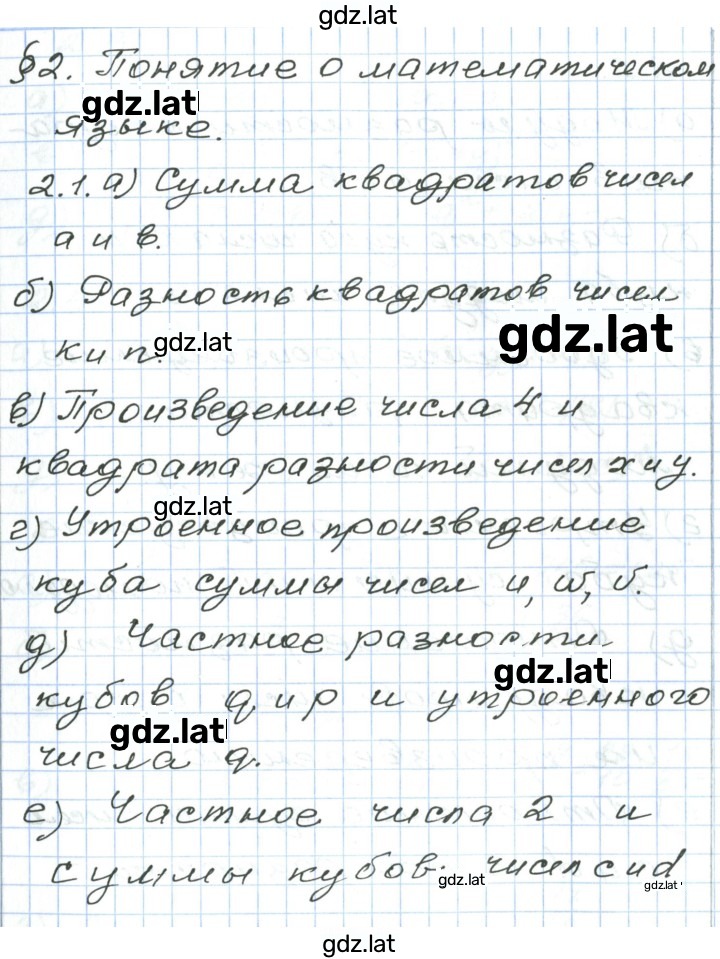 gdz.lat
§2. Понятие о математическом
gdz.lat
языке.
2.1. а) Сумма квадратов чисел
а и в.
б) Разность квадратов чисел
gdz.lat
к и п.
gdz.lat
в) Произведение числа 4 и
квадрата разности чисел х и у.
gdz.lat
г) Утроенное произведение
куба суммы чисел u, w, v.
д) Частное разности
gdz.lat
кубов q и p и утроенного
gdz.lat
числа q.
е) Частное числа 2 и
суммы кубов чисел c и d
gdz.lat
gdz.lat
gdz.lat